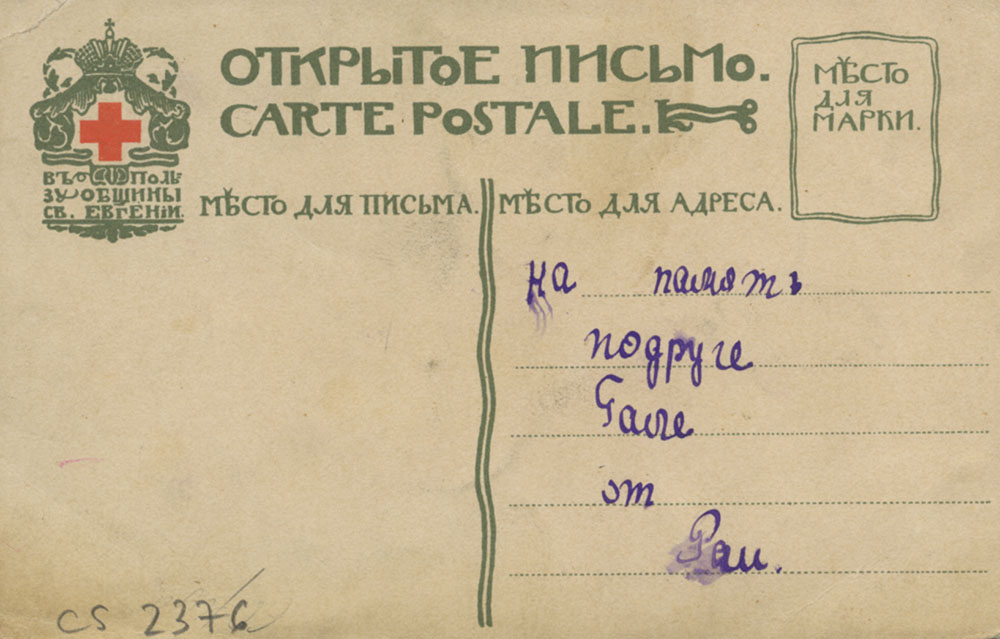 ОТКРЫТОЕ ПИСЬМО.
CARTE POSTALE.
МѢСТО
ДЛЯ
МАРКИ.
ВЪ ПОЛЬ
ЗУ ОБЩИНЫ
СВ. ЕВГЕНІИ.
МѢСТО ДЛЯ ПИСЬМА.
МѢСТО ДЛЯ АДРЕСА.
на память
подруге
Гале
от
Раи.
CS 2376